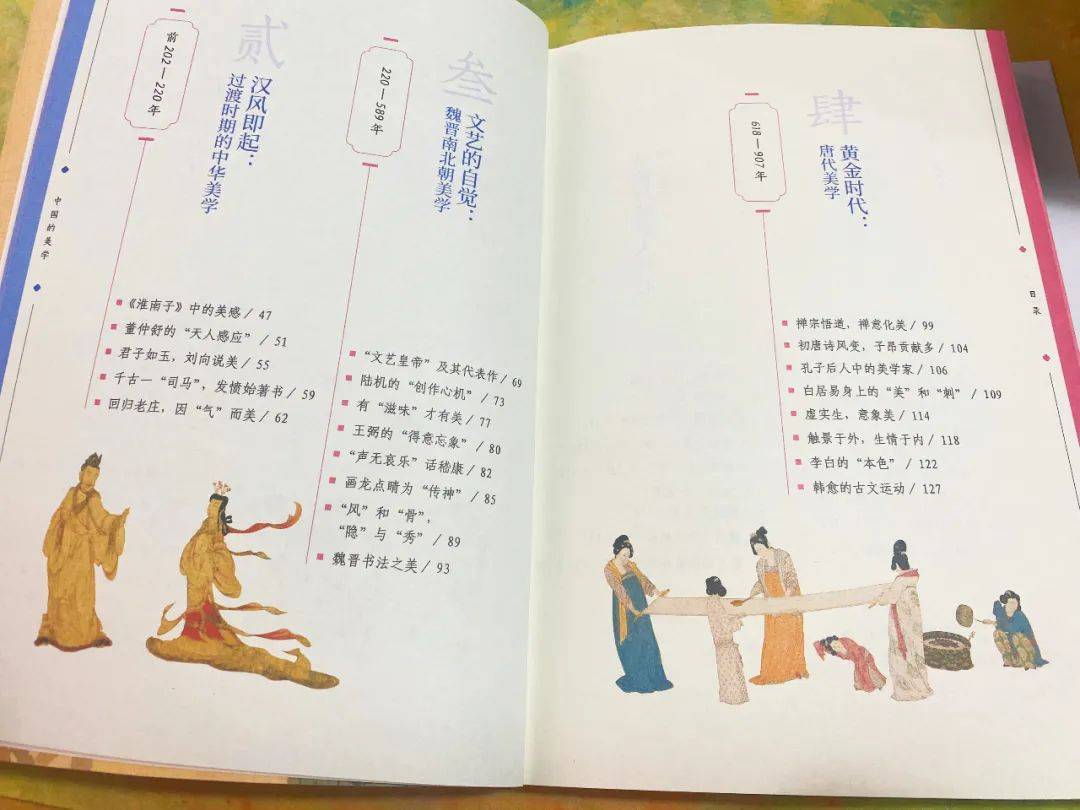 中国的美学
贰
汉风即起：
过渡时期的中华美学
前202—220年
《淮南子》中的美感 / 47
董仲舒的“天人感应” / 51
君子如玉，刘向说美 / 55
千古一“司马”，发愤始著书 / 59
回归老庄，因“气”而美 / 62
叁
文艺的自觉：
魏晋南北朝美学
220—589年
“文艺皇帝”及其代表作 / 69
陆机的“创作心机” / 73
有“滋味”才有美 / 77
王弼的“得意忘象” / 80
“声无哀乐”话嵇康 / 82
画龙点晴为“传神” / 85
“风”和“骨”，
“隐”与“秀” / 89
魏晋书法之美 / 93
肆
黄金时代：
唐代美学
618—907年
禅宗悟道，禅意化美 / 99
初唐诗风变，子昂贡献多 / 104
孔子后人中的美学家 / 106
白居易身上的“美”和“刺” / 109
虚实生，意象美 / 114
触景于外，生情于内 / 118
李白的“本色” / 122
韩愈的古文运动 / 127
目录